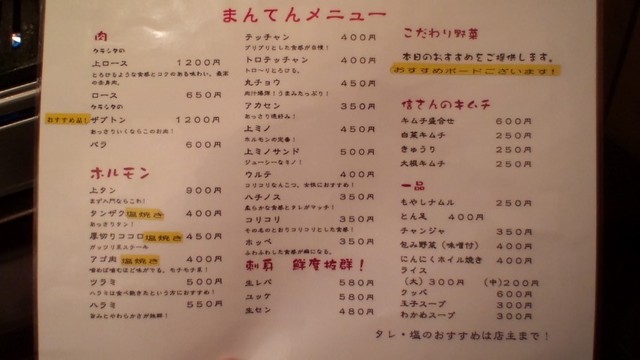 まんてんメニュー
肉
ウチシタの
上ロース 1200円
とろけるような食感とコクのある味わい。最高の赤身肉。
ロース 650円
ウチシタの
おすすめ品！ ザブトン 1200円
あっさりいくならこのお肉！
バラ 600円
ホルモン
上タン 900円
まず入門ならこれ！
タンザク塩焼き 400円
あっさりタン！
厚切りココロ塩焼き 450円
ガッツリ系ステーキ
アゴ肉 塩焼き 400円
噛めば噛むほど味がでる。モチモチ系！
ツラミ 500円
ハラミは食べ飽きたという方におすすめ！
ハラミ 550円
旨みとやわらかさが抜群！
テッチャン 400円
プリプリとした食感が自慢！
トロテッチャン 400円
トロ〜りとろける。
丸チョウ 450円
肉汁爆弾！うまみたっぷり！
アカセン 350円
あっさり通好み！
上ミノ 450円
ホルモンの定番！
上ミノサンド 500円
ジューシーなミノ！
ウルテ 400円
コリコリなんこつ。女性におすすめ！
ハチノス 350円
柔らかな食感とタレがマッチ！
コリコリ 350円
その名のとおりコリコリとした食感！
ホッペ 350円
ふわふわした食感が癖になる。
刺身 鮮度抜群！
生レバ 580円
ユッケ 580円
生セン 480円
こだわり野菜
本日のおすすめをご提供します。
おすすめボードございます！
信さんのキムチ
キムチ盛合せ 600円
白菜キムチ 250円
きゅうり 250円
大根キムチ 250円
一品
もやしナムル 250円
とん足 400円
チャンジャ 350円
包み野菜（味噌付） 400円
にんにくホイル焼き 400円
ライス
（大）300円 （中）200円
クッパ 600円
玉子スープ 300円
わかめスープ 300円
タレ・塩のおすすめは店主まで！